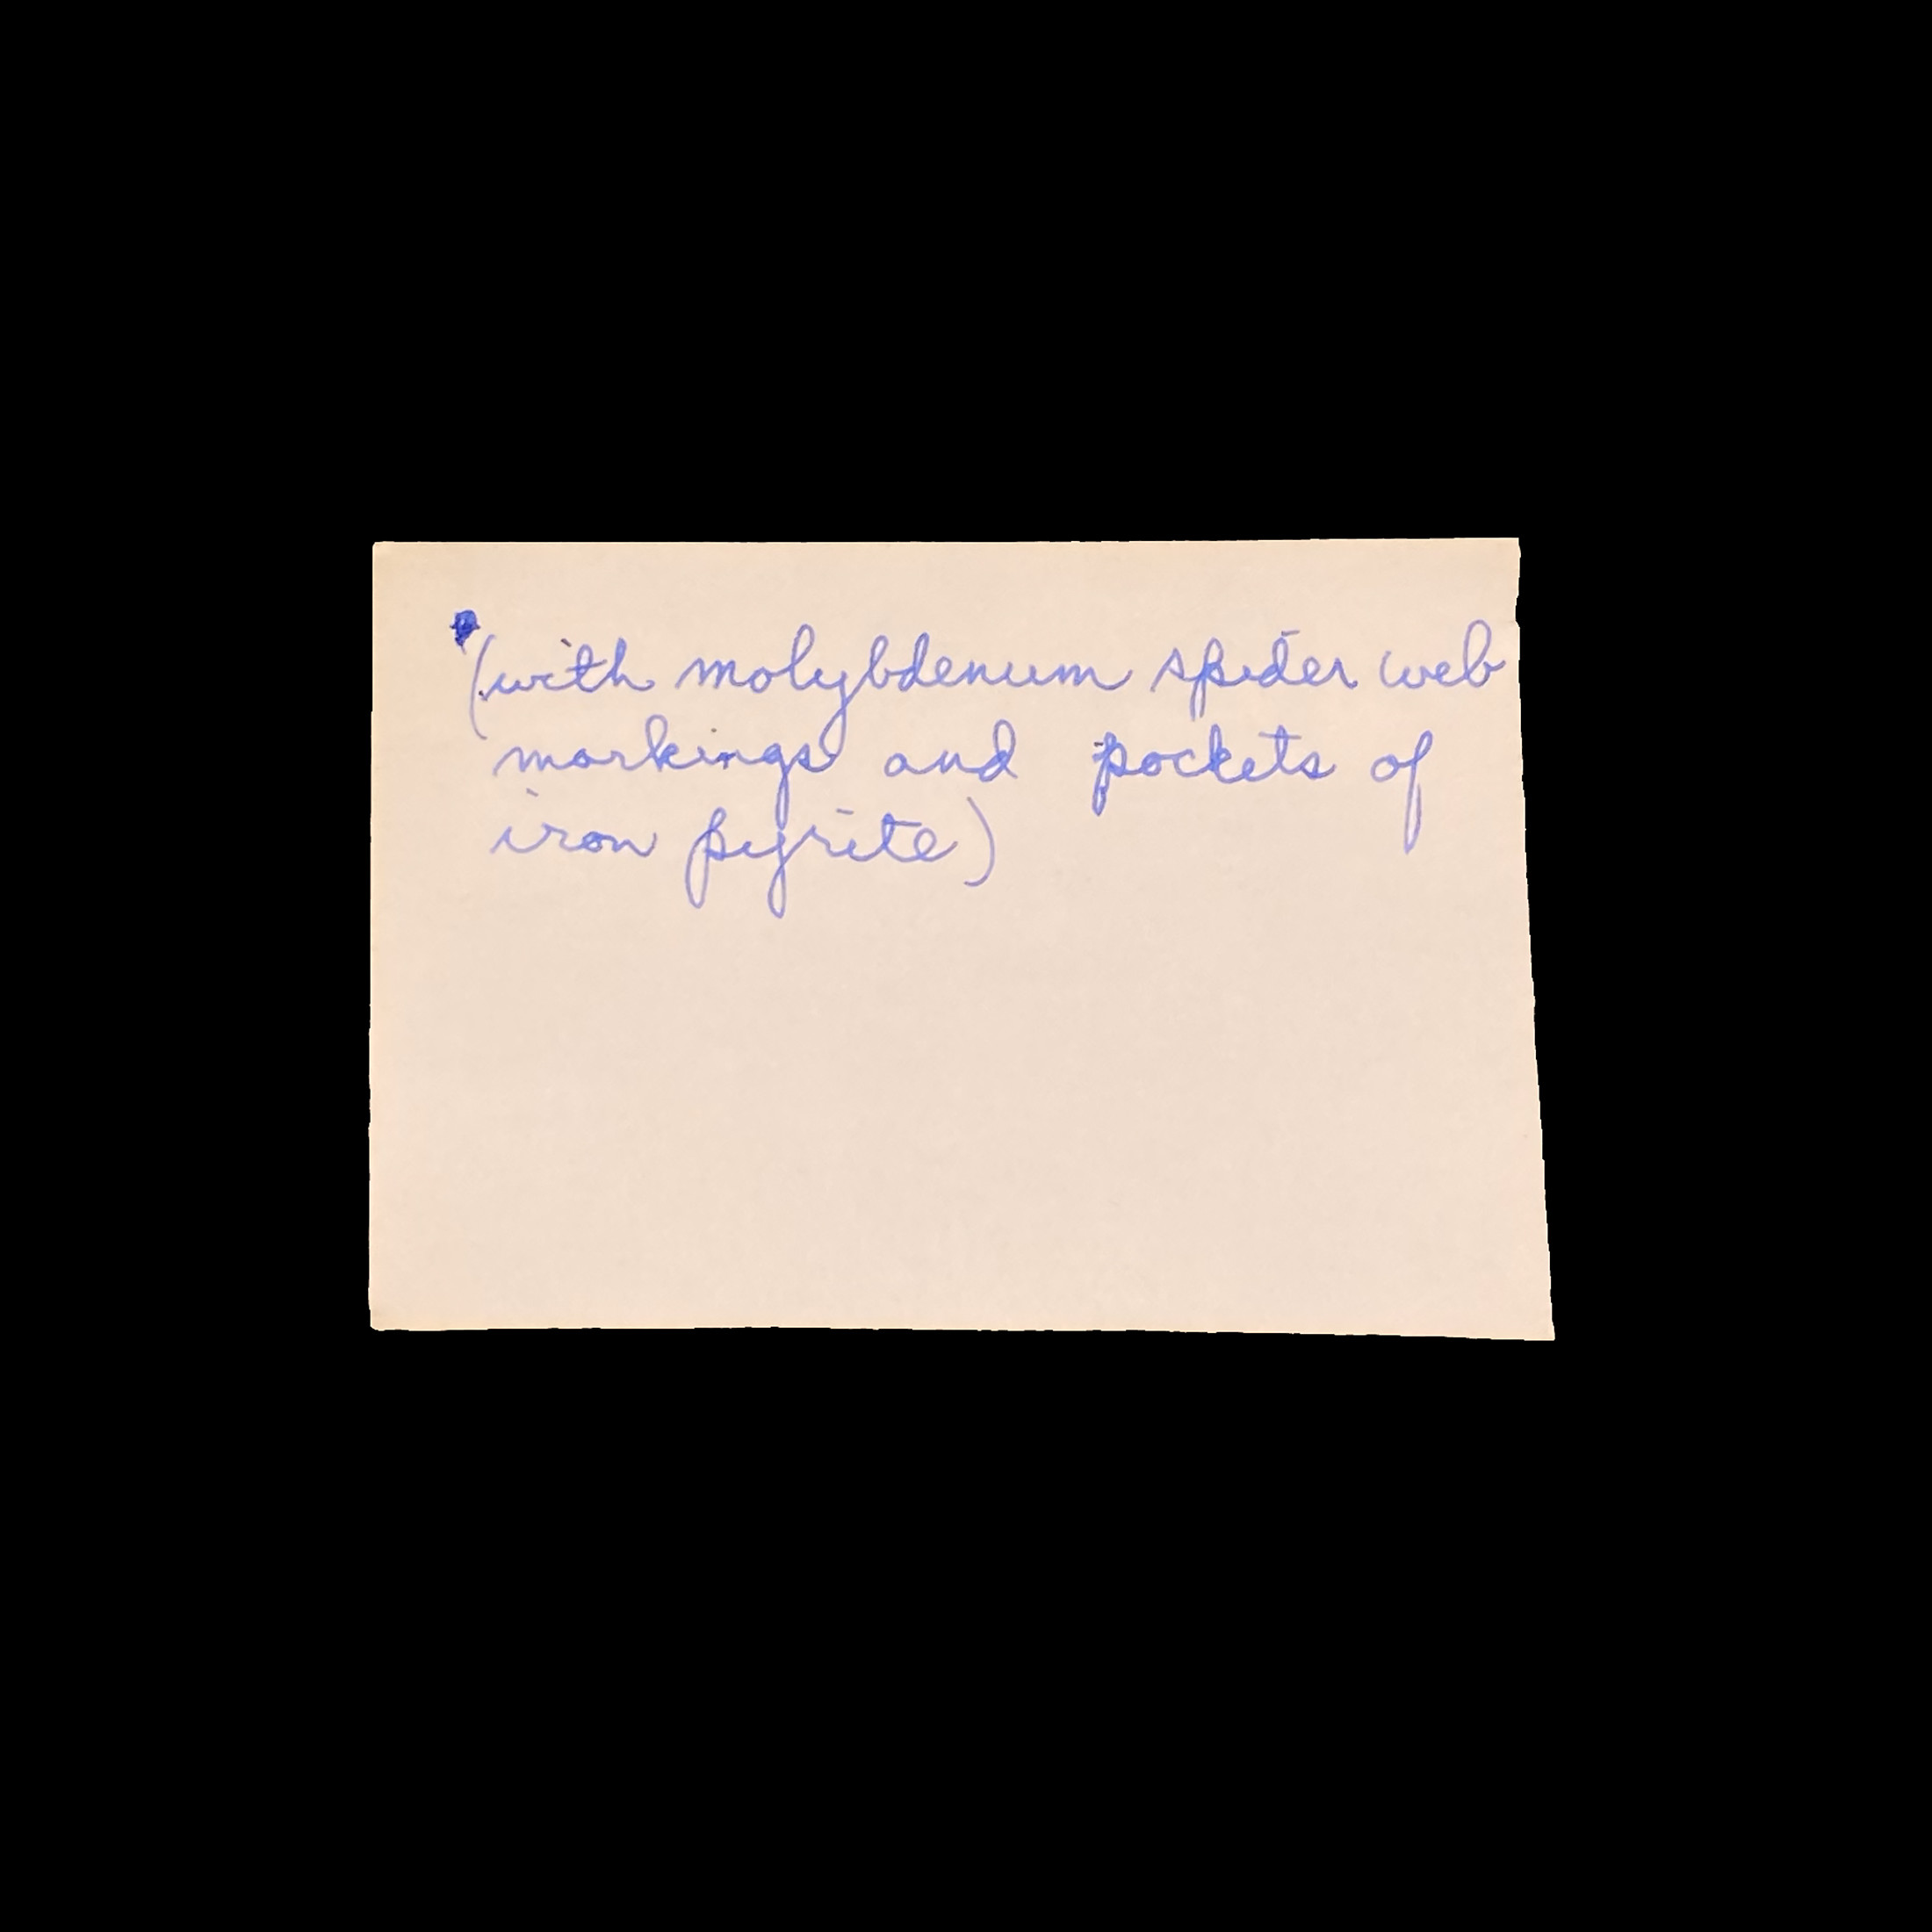 (with molybdenum spider web
markings and pockets of
iron pyrite)